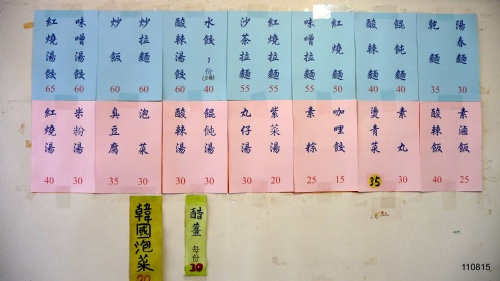 陽春麵 30
乾麵 35
餛飩麵 40
酸辣麵 40
紅燒麵 50
味噌拉麵 55
紅燒拉麵 55
沙茶拉麵 55
水餃 1份 40
酸辣湯餃 60
炒拉麵 60
炒飯 60
味噌湯餃 60
紅燒湯餃 65
素滷飯 25
酸辣飯 40
素丸 30
燙青菜 35
咖哩餃 15
素粽 25
紫菜湯 20
丸仔湯 30
餛飩湯 30
酸辣湯 30
泡菜 30
臭豆腐 35
米粉湯 30
紅燒湯 40
醋薑 每份 30
韓國泡菜
110815